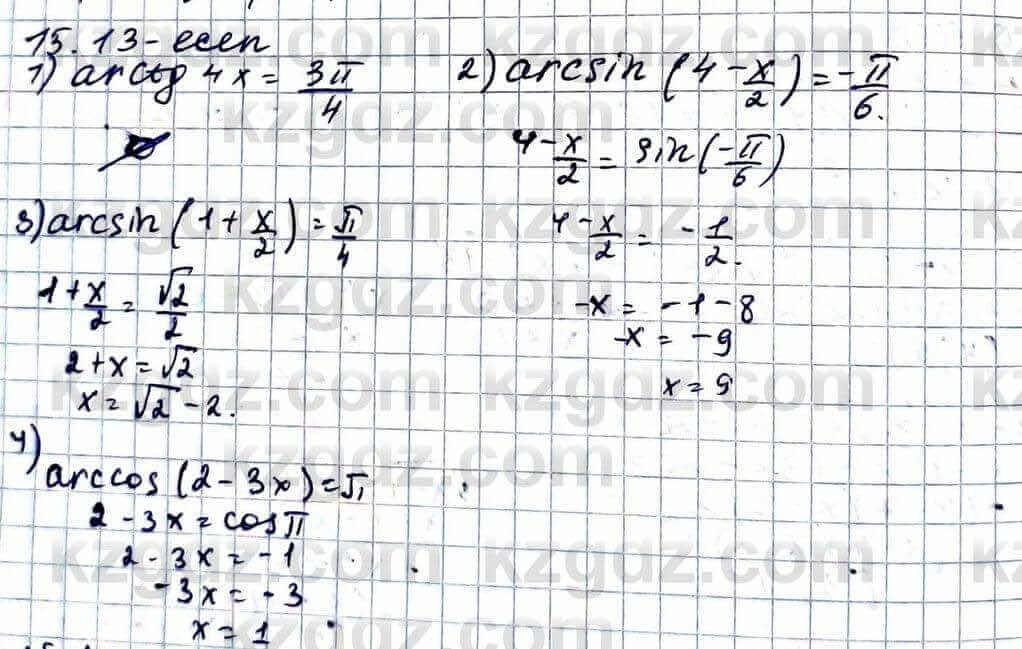 15.13-есеп
1) arctg 4x = 3π/4
2) arcsin (4 - x/2) = -π/6.
4 - x/2 = sin(-π/6)
4 - x/2 = -1/2.
-x = -1 - 8
-x = -9
x = 9
3) arcsin (1 + x/2) = π/4
1 + x/2 = √2/2
2 + x = √2
x = √2 - 2.
4)
arccos (2 - 3x) = π
2 - 3x = cos π
2 - 3x = -1
-3x = -3
x = 1
kzgdz.com